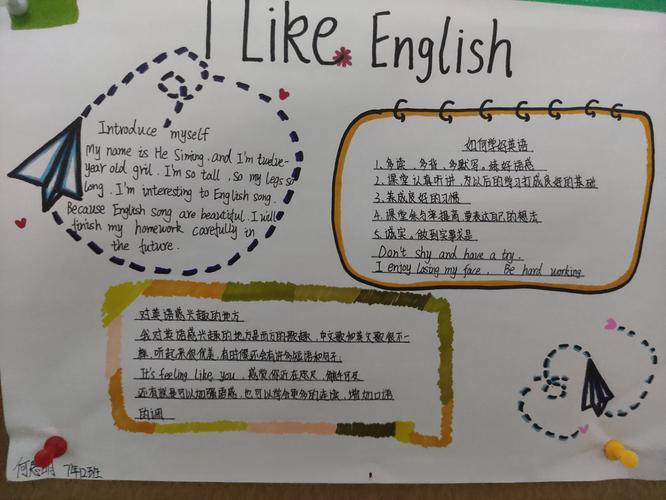 I Like English
Introduce myself
My name is He Siming. and I'm twelve-
year old gril. I'm so tall, so my legs so
long. I'm interesting to English song.
Because English song are beautiful. I will
finish my homework carefully in
the future.
如何学好英语
1、多读、多背、多默写。练好语感
2、课堂认真听讲,为以后的学习打成良好的基础
3、养成良好的习惯
4、课堂参与率提高,要表达自己的想法
5、诚实。做到实事求是
Don't shy and have a try.
I enjoy losing my face. Be hard working.
对英语感兴趣的地方
我对英语感兴趣的地方是西方的歌谣,中文歌和英文歌很不一
样,听起来很优美,有时候还会有许多短语和句子
It's feeling like you,感觉你近在咫尺,
还有就是可以加强语感,也可以学会更多的连读,增加口语
的调
7年12班